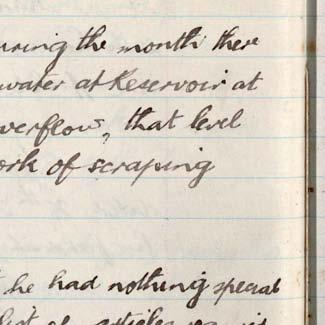 uring the month there
water at Reservoir at
verflows, that level
ork of scraping
he had nothing special
list of articles